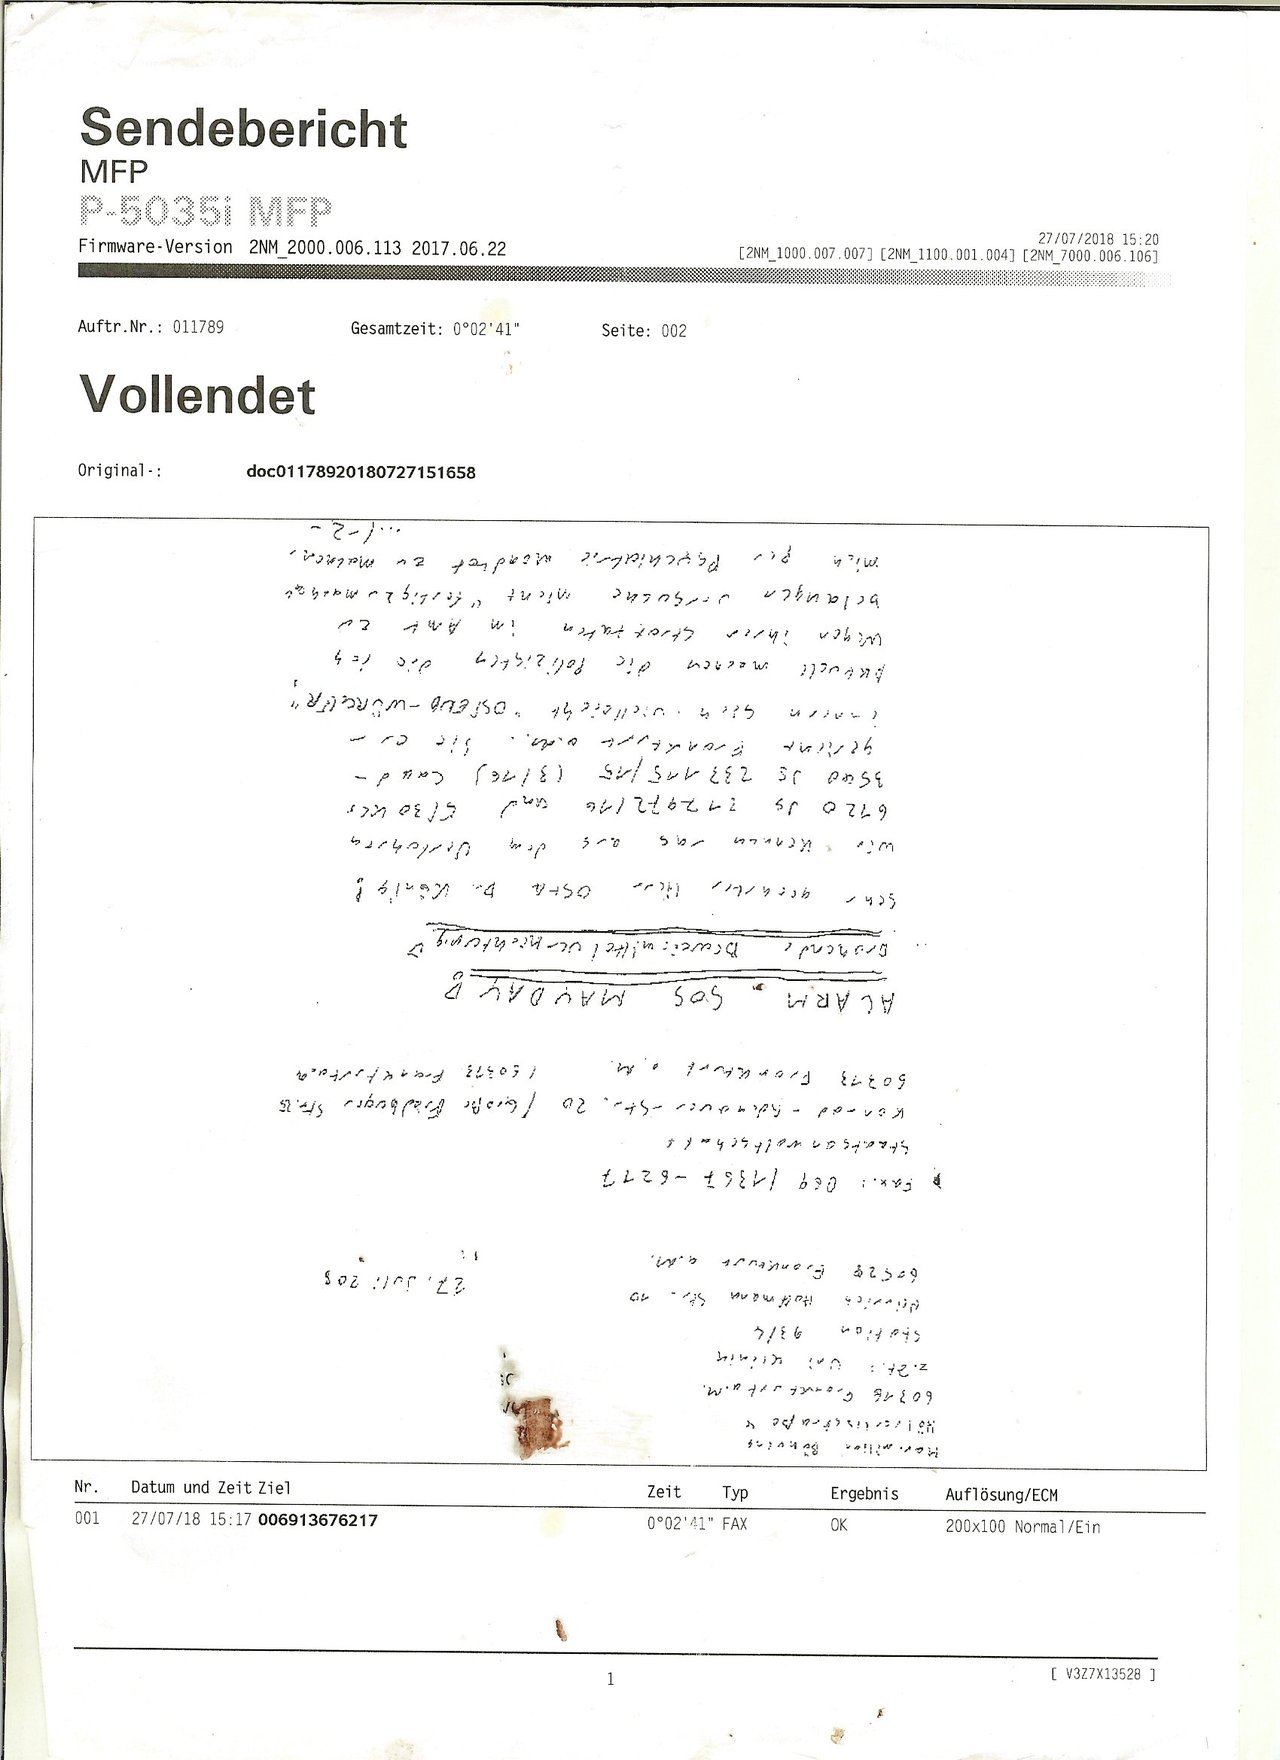 Sendebericht
MFP
P-5035i MFP
Firmware-Version 2NM_2000.006.113 2017.06.22
27/07/2018 15:20
[2NM_1000.007.007] [2NM_1100.001.004] [2NM_7000.006.106]
Auftr.Nr.: 011789 Gesamtzeit: 0°02'41" Seite: 002
Vollendet
Original-: doc01178920180727151658
60316 Frankfurt a.M.
z.Zt.: Uni Klinik
Station 93/4
Heinrich Hoffmann Str. 10
60528 Frankfurt a.M.
27. Juli 208
Fax.: 069 / 1367-6217
Staatsanwaltschaft
Konrad-Adenauer-Str. 20 / Große Friedburger Str.
60313 Frankfurt a.M. / 60313 Frankfurt a.M
ALARM SOS MAYDAY
Drohende Beweismittelvernichtung
Sehr geehrter Herr OStA Dr. König!
Wir kennen uns aus dem Verfahren
6120 Js 217972/16 und 5/30 KLs
3540 Js 233115/15 (3/16) Land-
gericht Frankfurt a.M. Sie er-
innern sich vielleicht "OSTEND-WÜRGER"
Aktuell machen die Polizisten die ich
wegen ihrer Straftaten im Amt zu
belangen versuche mich "fertigzumachen"
mich per Psychiatrie mundtot zu machen.
.../-2-
Nr. Datum und Zeit Ziel Zeit Typ Ergebnis Auflösung/ECM
001 27/07/18 15:17 006913676217 0°02'41" FAX OK 200x100 Normal/Ein
1
[ V3Z7X13528 ]